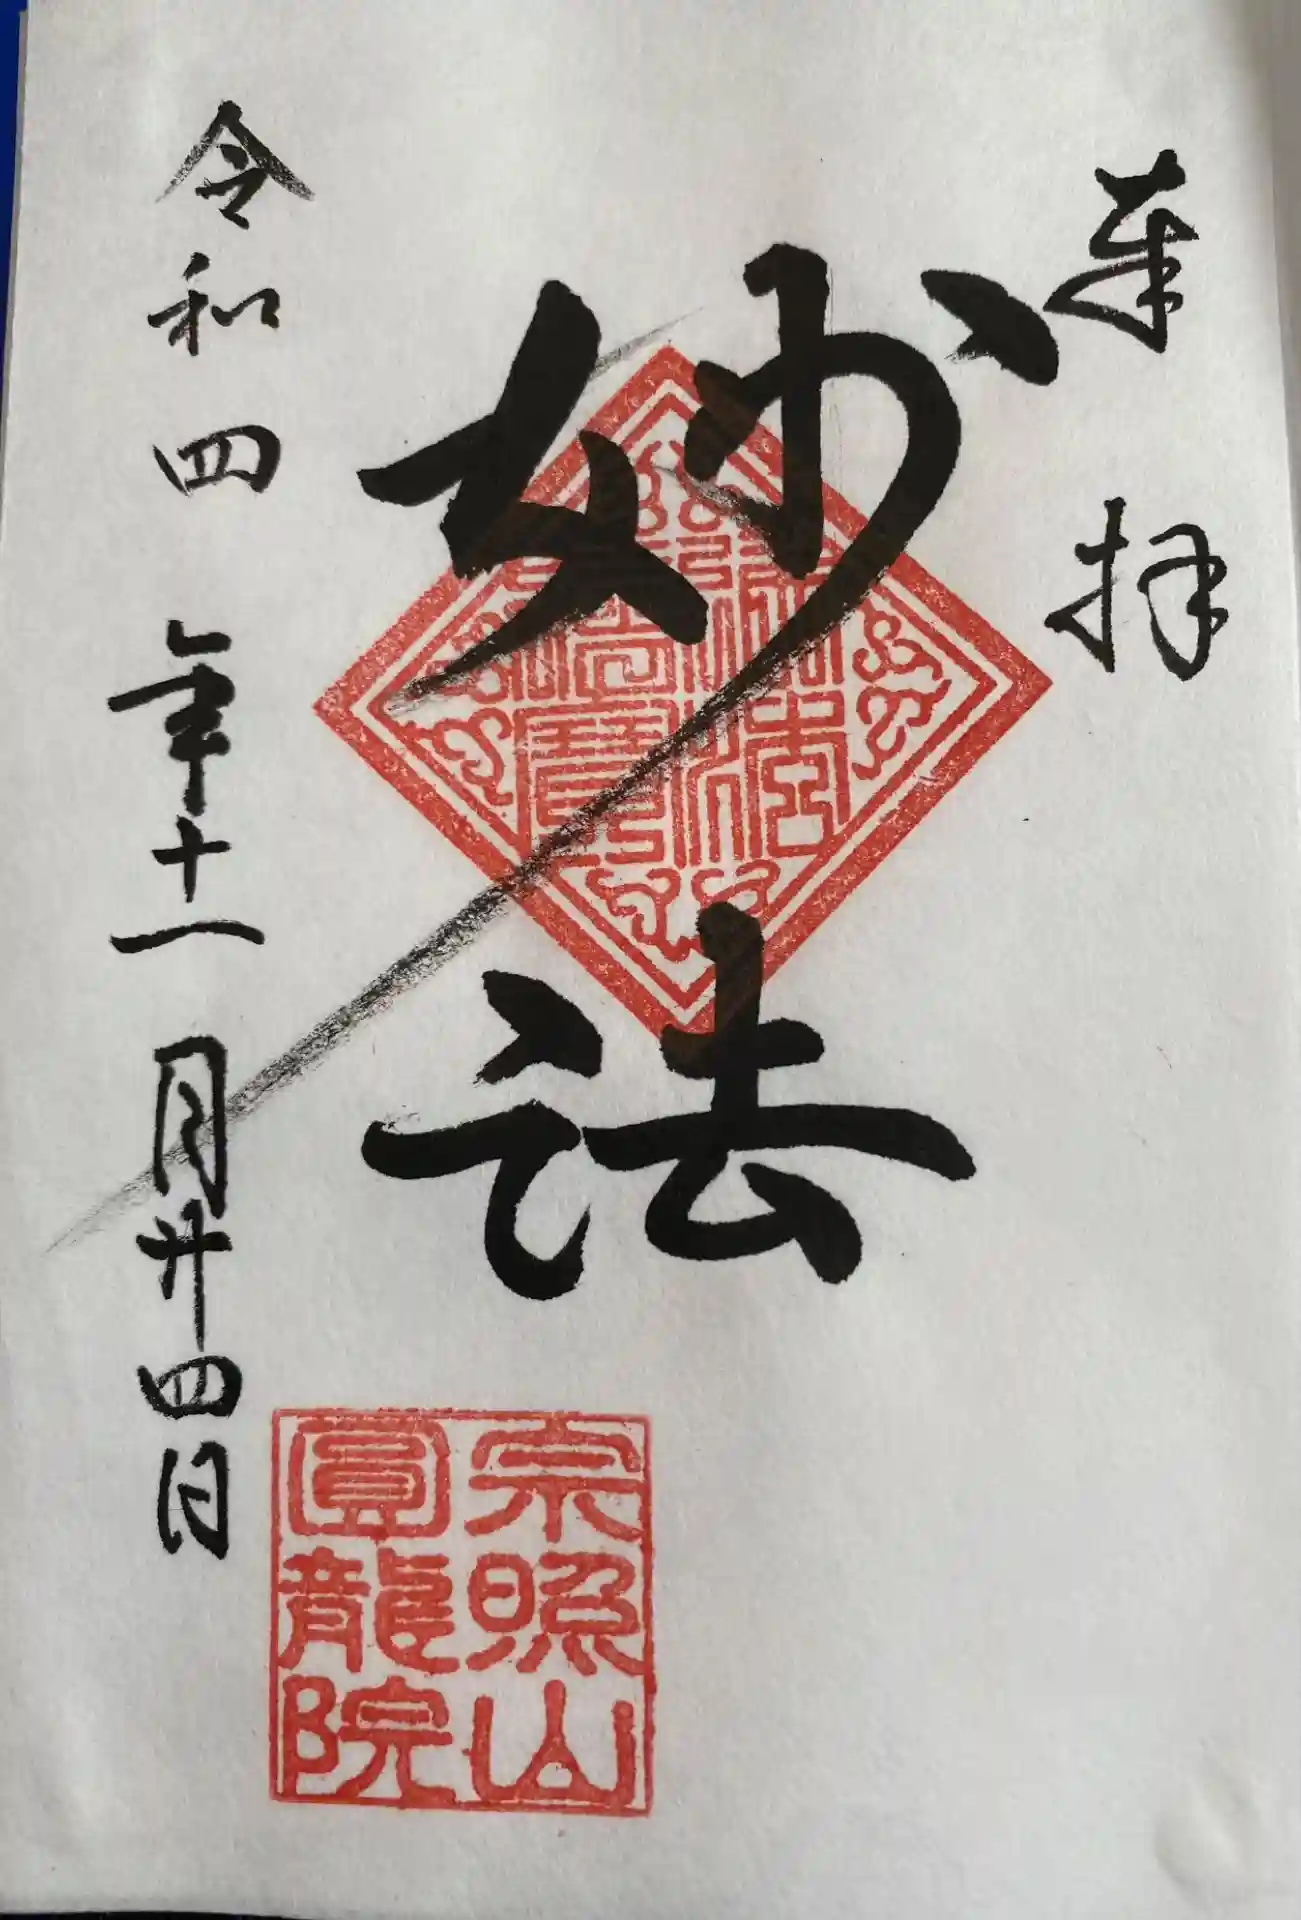 奉拝
妙法
令和四年十一月廿四日
宗照山
圓龍院